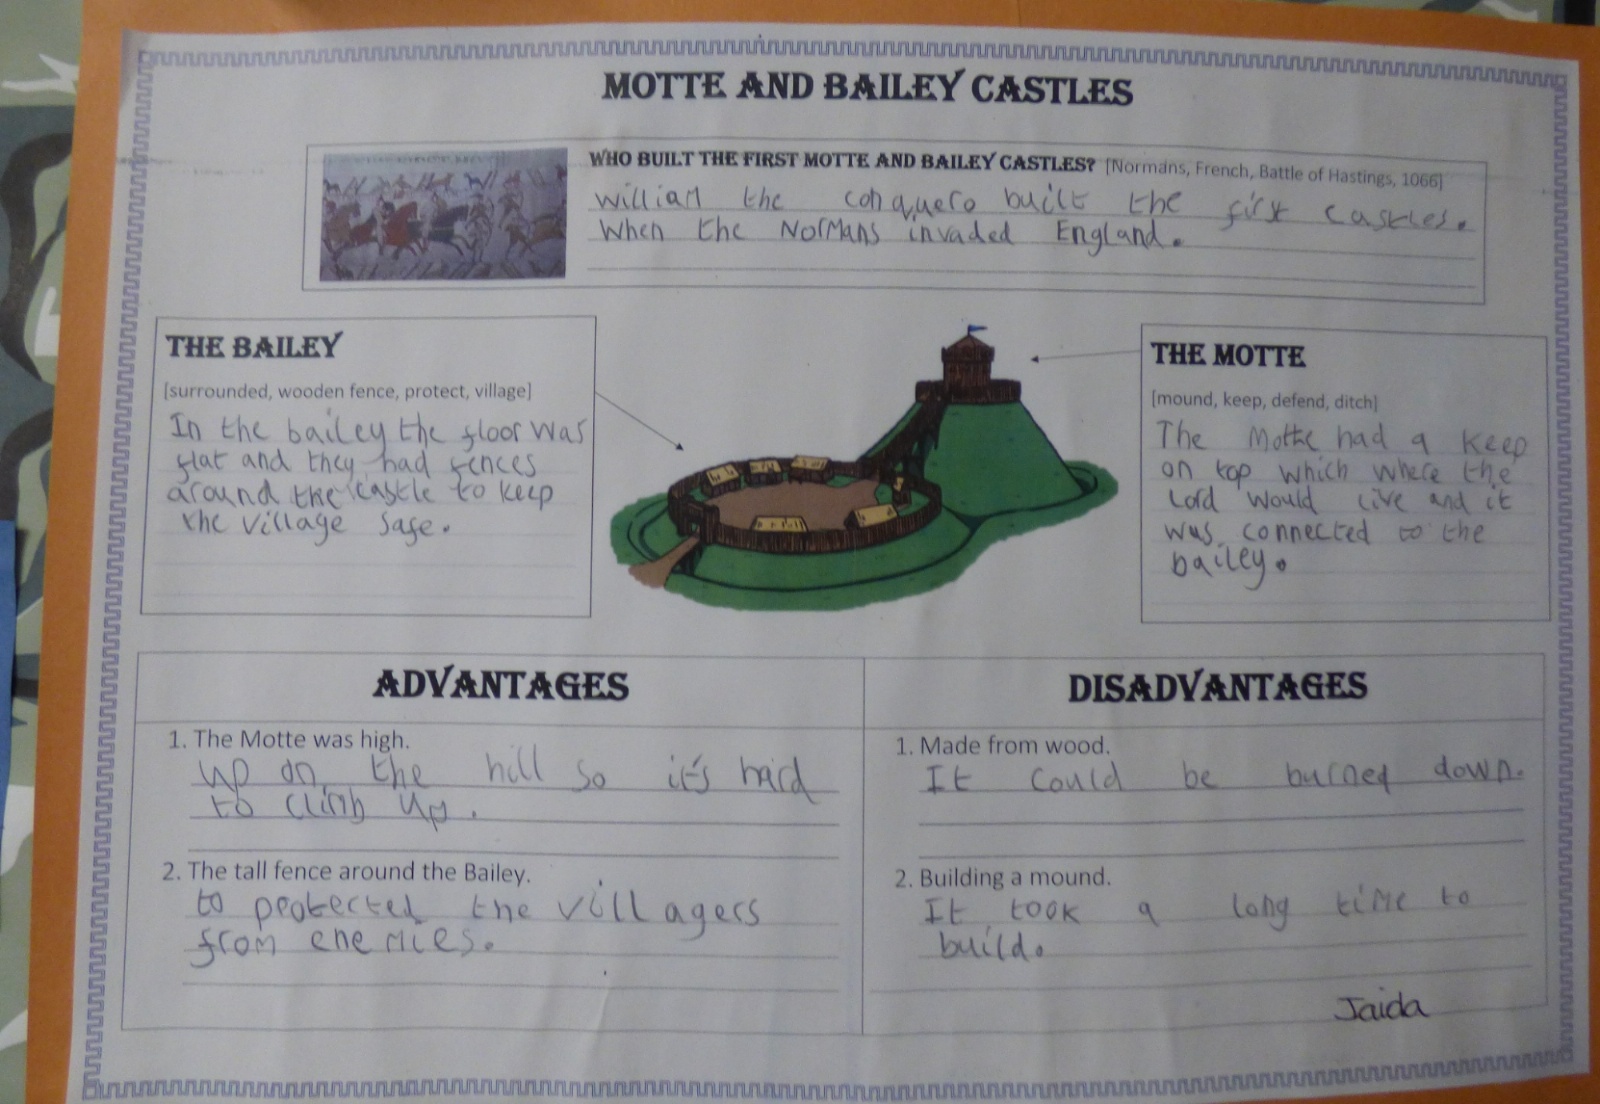 MOTTE AND BAILEY CASTLES
WHO BUILT THE FIRST MOTTE AND BAILEY CASTLES? [Normans, French, Battle of Hastings, 1066]
william the conquero built the first castles.
When the Normans invaded England.
THE BAILEY
[surrounded, wooden fence, protect, village]
In the bailey the floor was
flat and they had fences
around the castle to keep
the village safe.
THE MOTTE
[mound, keep, defend, ditch]
The Motte had a keep
on top which where the
Lord would live and it
was connected to the
bailey.
ADVANTAGES
1. The Motte was high.
up on the hill so it's hard
to climb up.
2. The tall fence around the Bailey.
to protected the villagers
from enemies.
DISADVANTAGES
1. Made from wood.
It could be burned down.
2. Building a mound.
It took a long time to
build.
Jaida